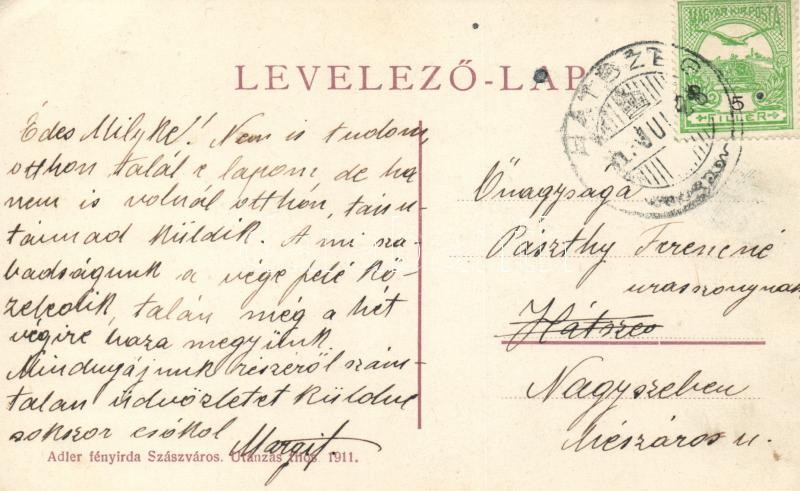 LEVELEZŐ-LAP
MAGYAR KIR. POSTA
5
FILLER
HÁTSZEG
Édes Milyke! Nem is tudom,
otthon talál e lapom, de ha
nem is volnál otthon, tán u-
tánnad küldik. A mi sza-
badságunk a vége felé kö-
zeledik, talán még a hét
végire haza megyünk.
Mindnyájunk részéről szám-
talan üdvözletet küldve
sokszor csókol Margit.
Őnagysága
Pászthy Ferencné
uraszonynak
Hátszeg
Nagyszeben
Mészáros u.
Adler fényirda Szászváros. Utánzás tilos. 1911.